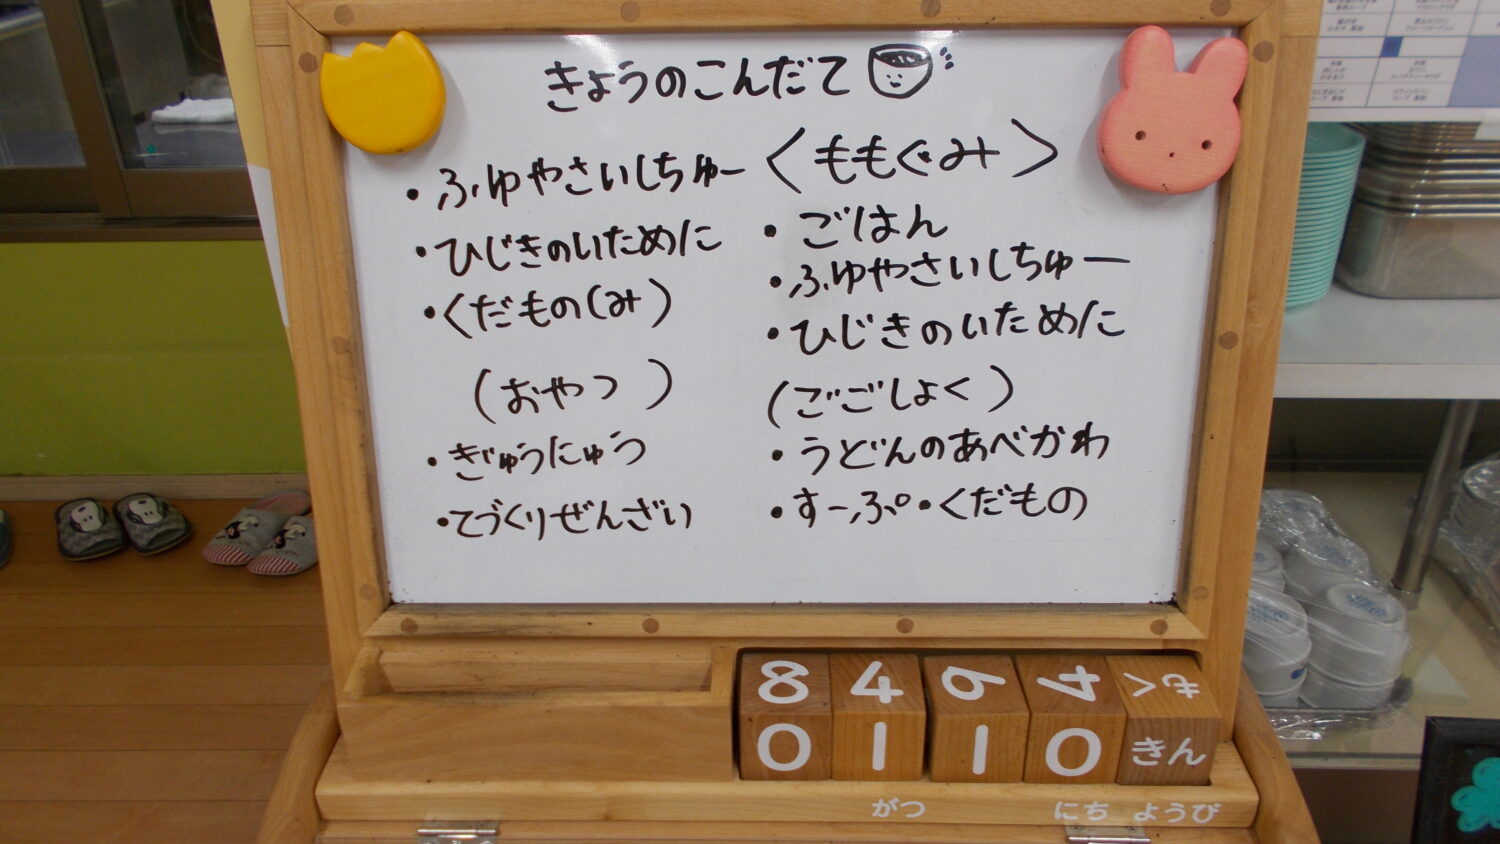 きょうのこんだて
・ふゆやさいしちゅー
・ひじきのいために
・くだもの(み)
(おやつ)
・ぎゅうにゅう
・てづくりぜんざい
〈ももぐみ〉
・ごはん
・ふゆやさいしちゅー
・ひじきのいために
(ごごしょく)
・うどんのあべかわ
・すーぷ・くだもの
8 4 9 4 もく
0 1 1 0 きん
がつ にち ようび